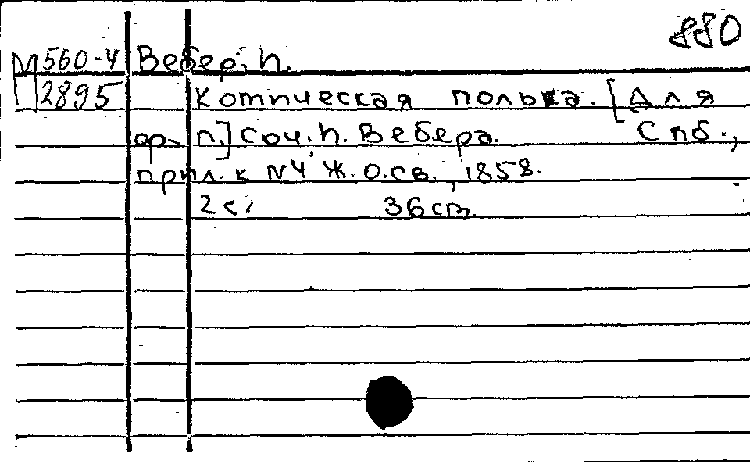 880
М560-4 Вебер, П.
2895 Комическая полька. [Для
фр-п.] Соч. П. Вебера. Спб.,
прил. к N4 Ж. О.св., 1858.
2 с. 36 см.